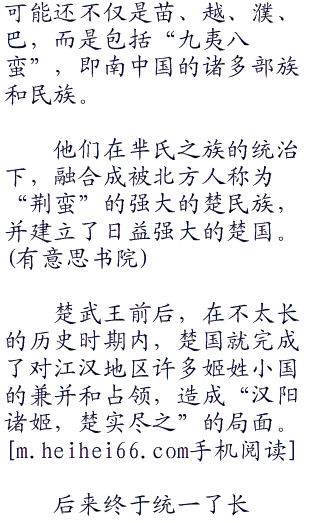 可能还不仅是苗、越、濮、
巴，而是包括“九夷八
蛮”，即南中国的诸多部族
和民族。
他们在芈氏之族的统治
下，融合成被北方人称为
“荆蛮”的强大的楚民族，
并建立了日益强大的楚国。
(有意思书院)
楚武王前后，在不太长
的历史时期内，楚国就完成
了对江汉地区许多姬姓小国
的兼并和占领，造成“汉阳
诸姬，楚实尽之”的局面。
[m.heihei66.com手机阅读]
后来终于统一了长